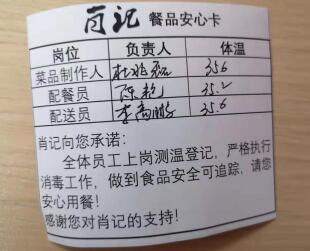 肖记 餐品安心卡
岗位 负责人 体温
菜品制作人 35.6
配餐员 陈艳 35.2
配送员 李高鹏 35.6
肖记向您承诺:
全体员工上岗测温登记，严格执行
消毒工作，做到食品安全可追踪，请您
安心用餐!
感谢您对肖记的支持!